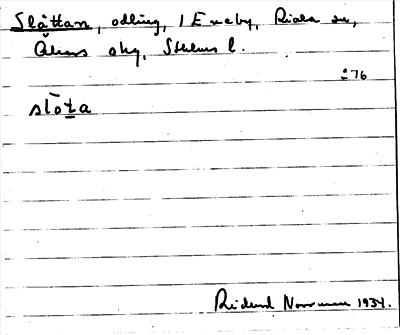 Slåttan, odling, i Eneby, Riala sn,
Åkers skg, Sthlms l.
76
slōta
Rickard Norrman 1934.